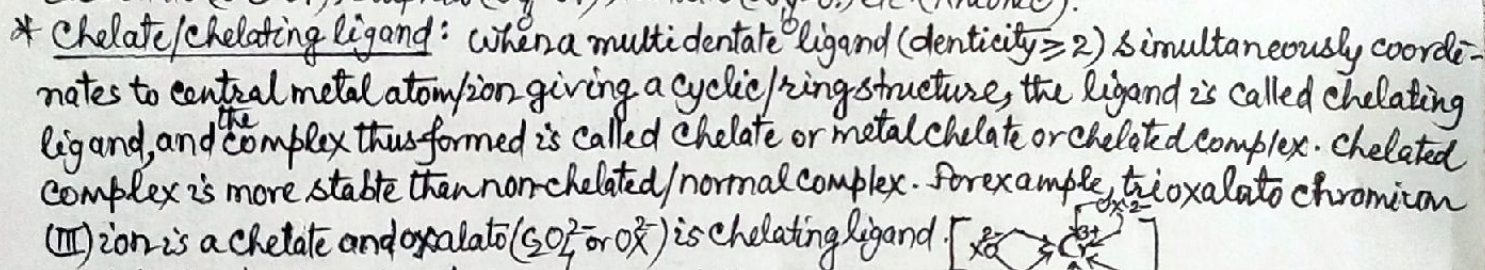 * Chelate/chelating ligand: When a multidentate ligand (denticity ≥ 2) simultaneously coordi-
nates to central metal atom/ion giving a cyclic/ring structure, the ligand is called chelating
ligand, and the complex thus formed is called chelate or metal chelate or chelated complex. Chelated
complex is more stable than non-chelated/normal complex. For example, trioxalato chromium
(III) ion is a chelate and oxalato (C2O4^2- or OX^2-) is chelating ligand. [
OX^2-
OX^2- Cr^3+ ]